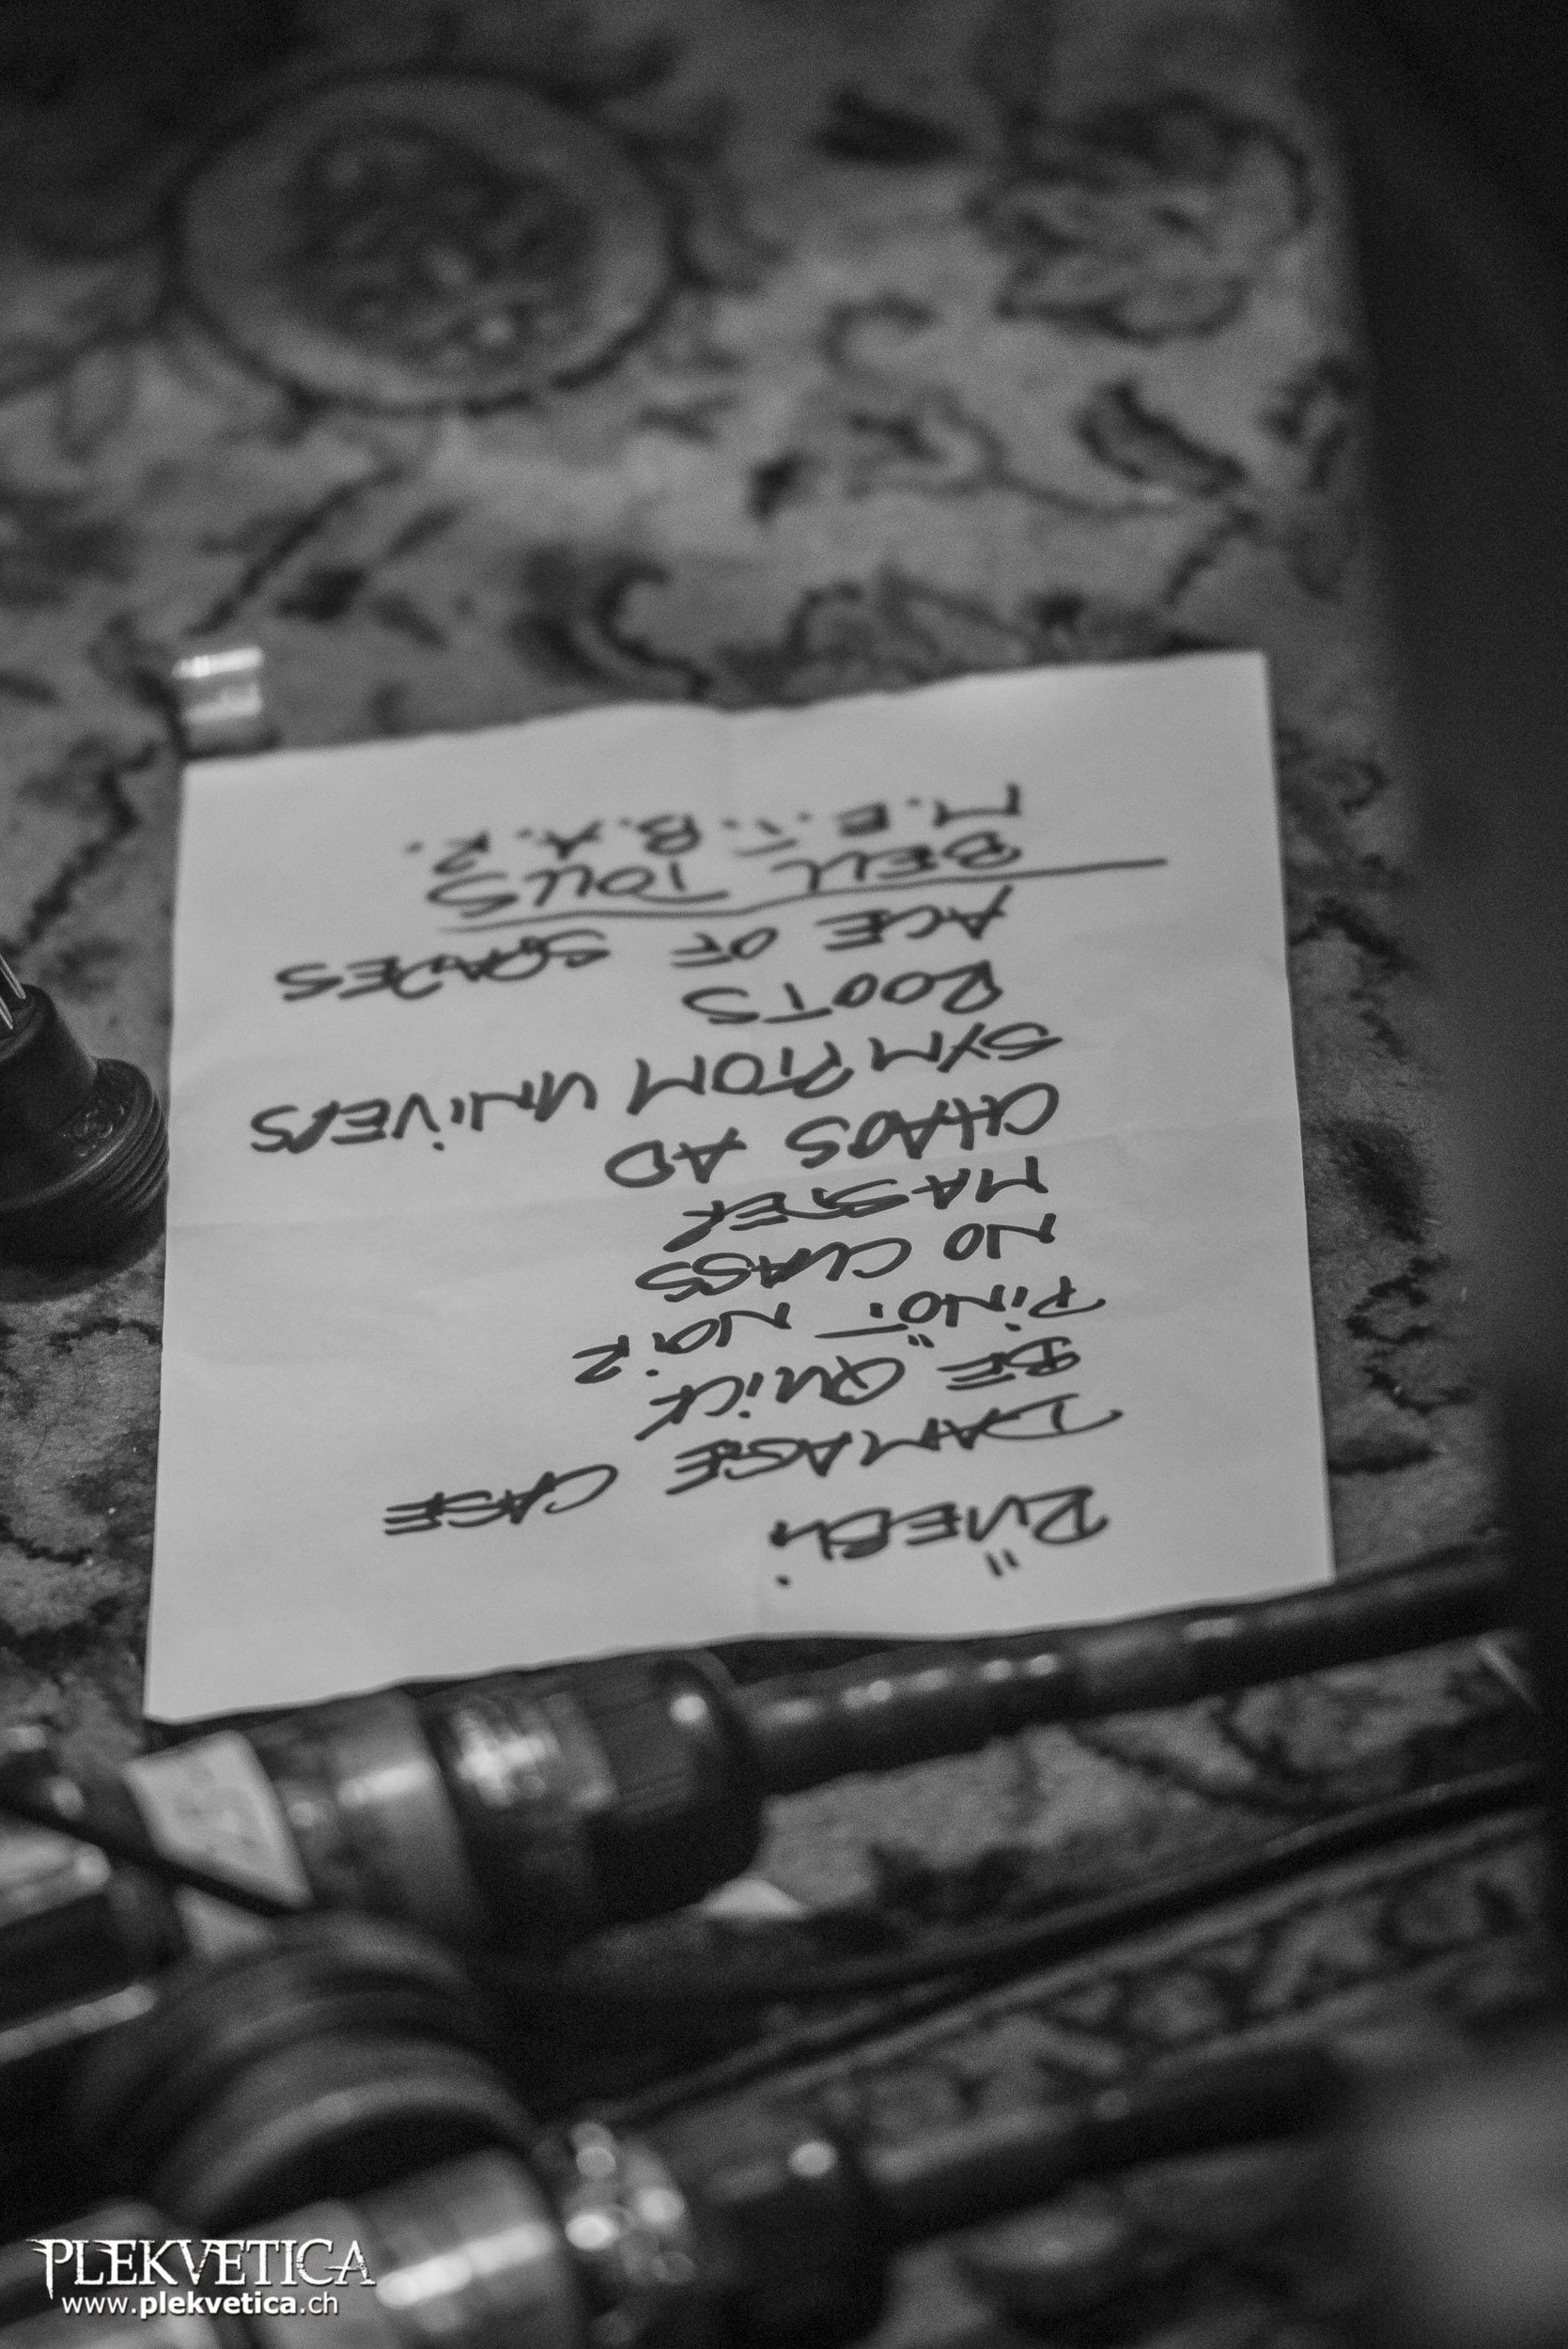 RÜEBLi
DAMAGE CASE
BE "QUiCK"
PiNOT NOiR
NO CLASS
MASTER
CHAOS AD
SYMPTOM UNiVERS
ROOTS
ACE OF SPADES
BELL TOLLS
M.E.T.B.A.R.
PLEKVETICA
www.plekvetica.ch